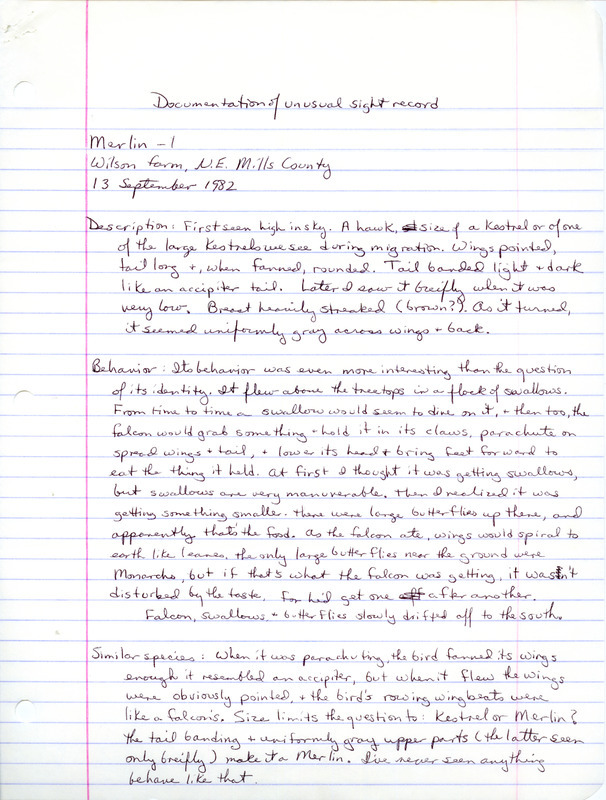 Documentation of unusual sight record
Merlin - 1
Wilson farm, N.E. Mills County
13 September 1982
Description: First seen high in sky. A hawk, size of a Kestrel or of one
of the large Kestrels we see during migration. Wings pointed,
tail long +, when fanned, rounded. Tail banded light + dark
like an accipiter tail. Later I saw it breifly when it was
very low. Breast heavily streaked (brown?). As it turned,
it seemed uniformly gray across wings + back.
Behavior: Its behavior was even more interesting than the question
of its identity. It flew above the treetops in a flock of swallows.
From time to time a swallow would seem to dive on it, + then too, the
falcon would grab something + hold it in its claws, parachute on
spread wings + tail, + lower its head + bring feet forward to
eat the thing it held. At first I thought it was getting swallows,
but swallows are very manuverable. Then I realized it was
getting something smaller. There were large butterflies up there, and
apponently that's the food. As the falcon ate, wings would spiral to
earth like leaves. The only large butterflies near the ground were
Monarchs, but if that's what the falcon was getting, it wasn't
disturbed by the taste, for he'd get one after another.
Falcon, swallows, + butterflies slowly drifted off to the south.
Similar species: When it was parachuting, the bird fanned its wings
enough it resembled an accipiter, but when it flew the wings
were obviously pointed, + the bird's rowing wingbeats were
like a falcon's. Size limits the question to: Kestrel or Merlin?
The tail banding + uniformly gray upper parts (the latter seen
only breifly) make it a Merlin. I've never seen anything
behave like that.